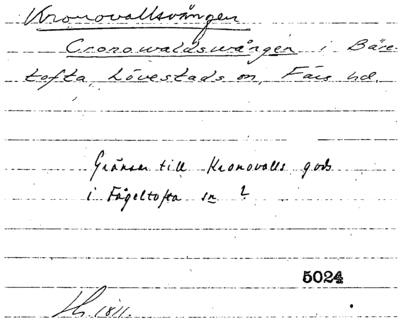 Kronovallsvången
Cronowaldswången i Bäre-
tofta, Lövestads sn, Färs hd.
Gränsar till Kronovalls gods
i Fågeltofta sn ?
5024
1811.